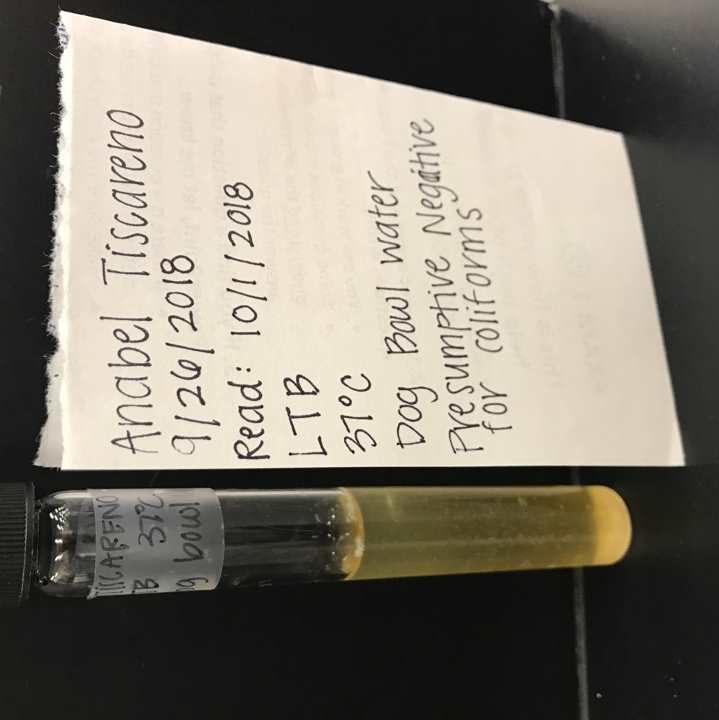 Anabel Tiscareno
9/26/2018
Read: 10/1/2018
LTB
37°C
Dog Bowl water
Presumptive Negative
for coliforms
TISCARENO
TB 37°C
og bowl